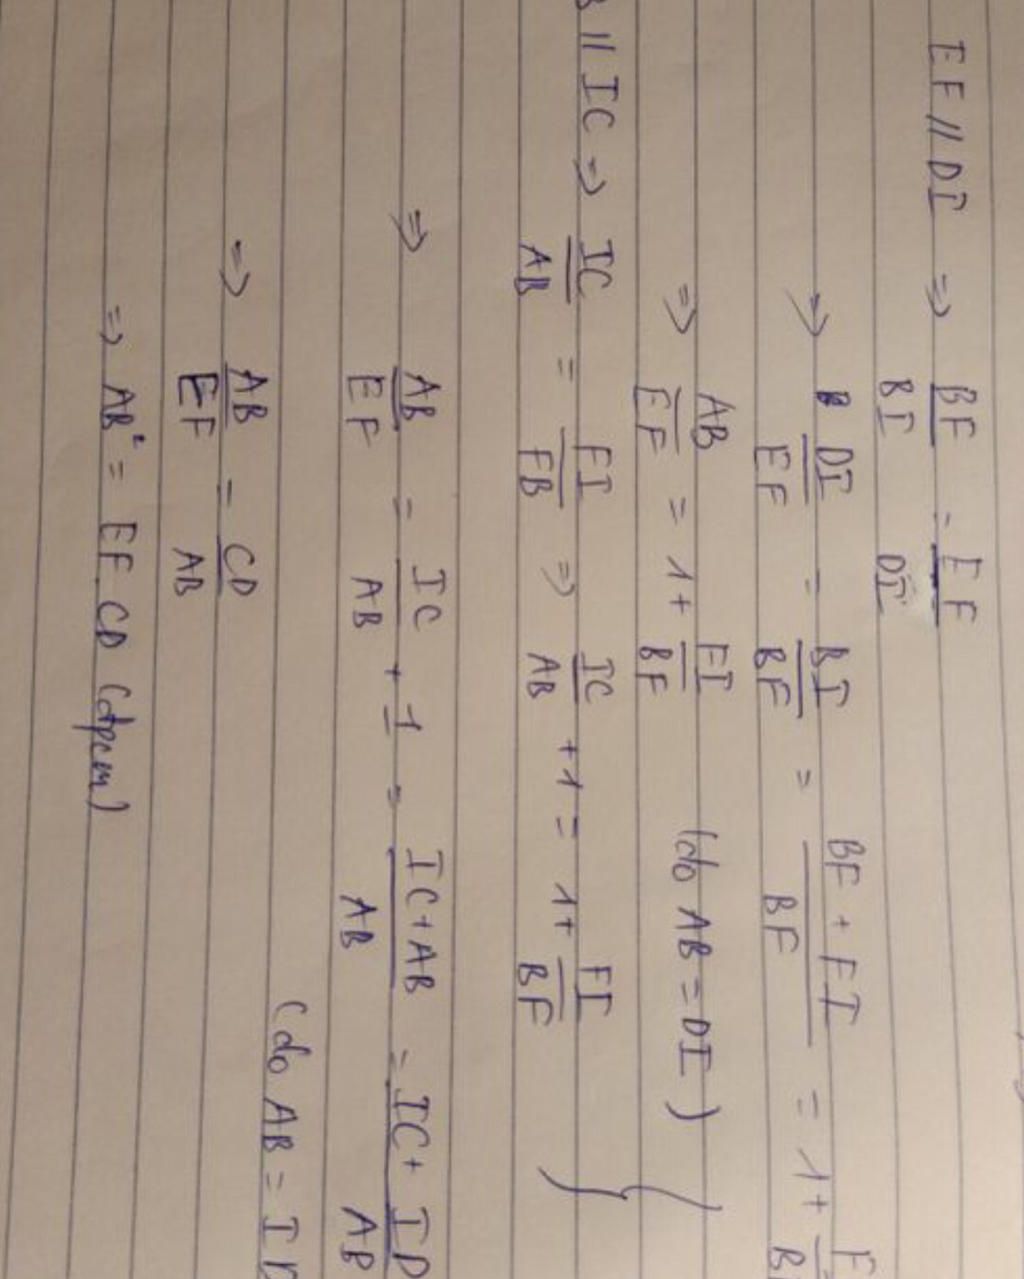 EF // DI => BF/BI = EF/DI
=> DI/EF = BI/BF = (BF + FI)/BF = 1 +
=> AB/EF = 1 + FI/BF (do AB = DI)
// IC => IC/AB = FI/FB => IC/AB + 1 = 1 + FI/BF
=> AB/EF = IC/AB + 1 = (IC + AB)/AB = (IC + ID)/AB
(do AB = ID
=> AB/EF = CD/AB
=> AB² = EF.CD (đpcm)